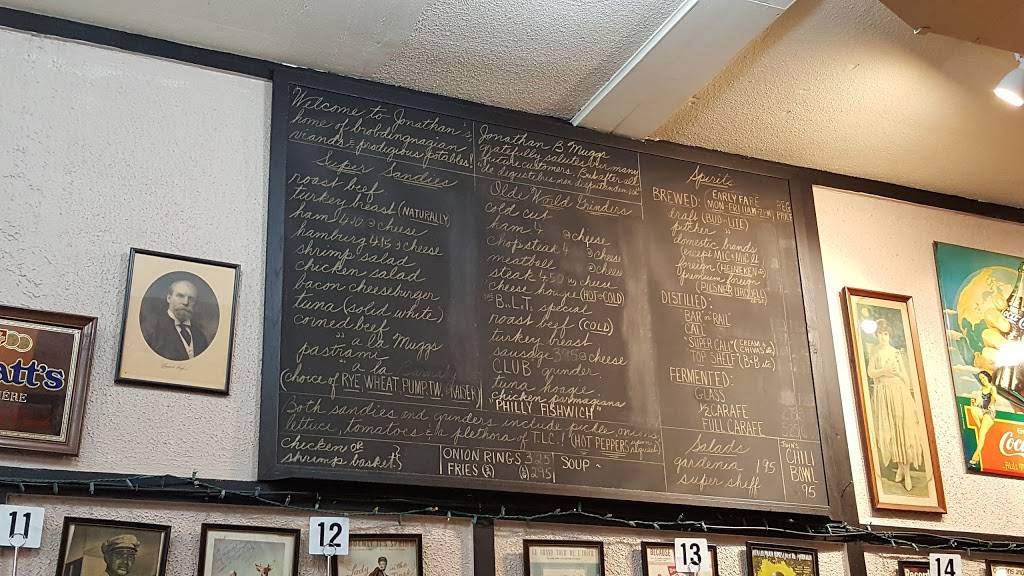 Welcome to Jonathan's
home of brobdingnagian
viands & prodigious potables!
Super Sandies
roast beef
turkey breast (NATURALLY)
ham cheese
hamburg 4.15 cheese
shrimp salad
chicken salad
bacon cheeseburger
tuna (solid white)
corned beef
" a la Muggs
pastrami
" a la
(choice of RYE WHEAT PUMP. TW. KAISER)
Jonathan B. Muggs
salutes the many
future customers
Olde World Grinders
cold cut
ham 4 cheese
chopsteak 4 cheese
meatball cheese
steak cheese
cheese hoagie (HOT or COLD)
B.L.T. special
roast beef (COLD)
turkey breast
sausage 3.95 cheese
CLUB grinder
tuna hoagie
chicken parmagiana
"PHILLY FISHWICH"
Both sandies and grinders include pickle, onions
lettuce, tomatoes & a plethora of T.L.C.! (HOT PEPPERS upon request)
chicken or
shrimp basket
ONION RINGS 3.25
FRIES 2.95
SOUP
Spirits
BREWED: EARLY FARE
MON-FRI 11AM-7PM
draft (BUD-LITE)
pitcher "
domestic brands
foreign (HEINEKEN)
premium foreign
(PILSNER URQUELL)
DISTILLED:
BAR or RAIL
CALL
"SUPER CALL"
TOP SHELF
FERMENTED:
GLASS
1/2 CARAFE
FULL CARAFE
Salads
gardenia 1.95
super sheff
CHILI
BOWL
.95
att's
ERE
Coca
11
12
13
14